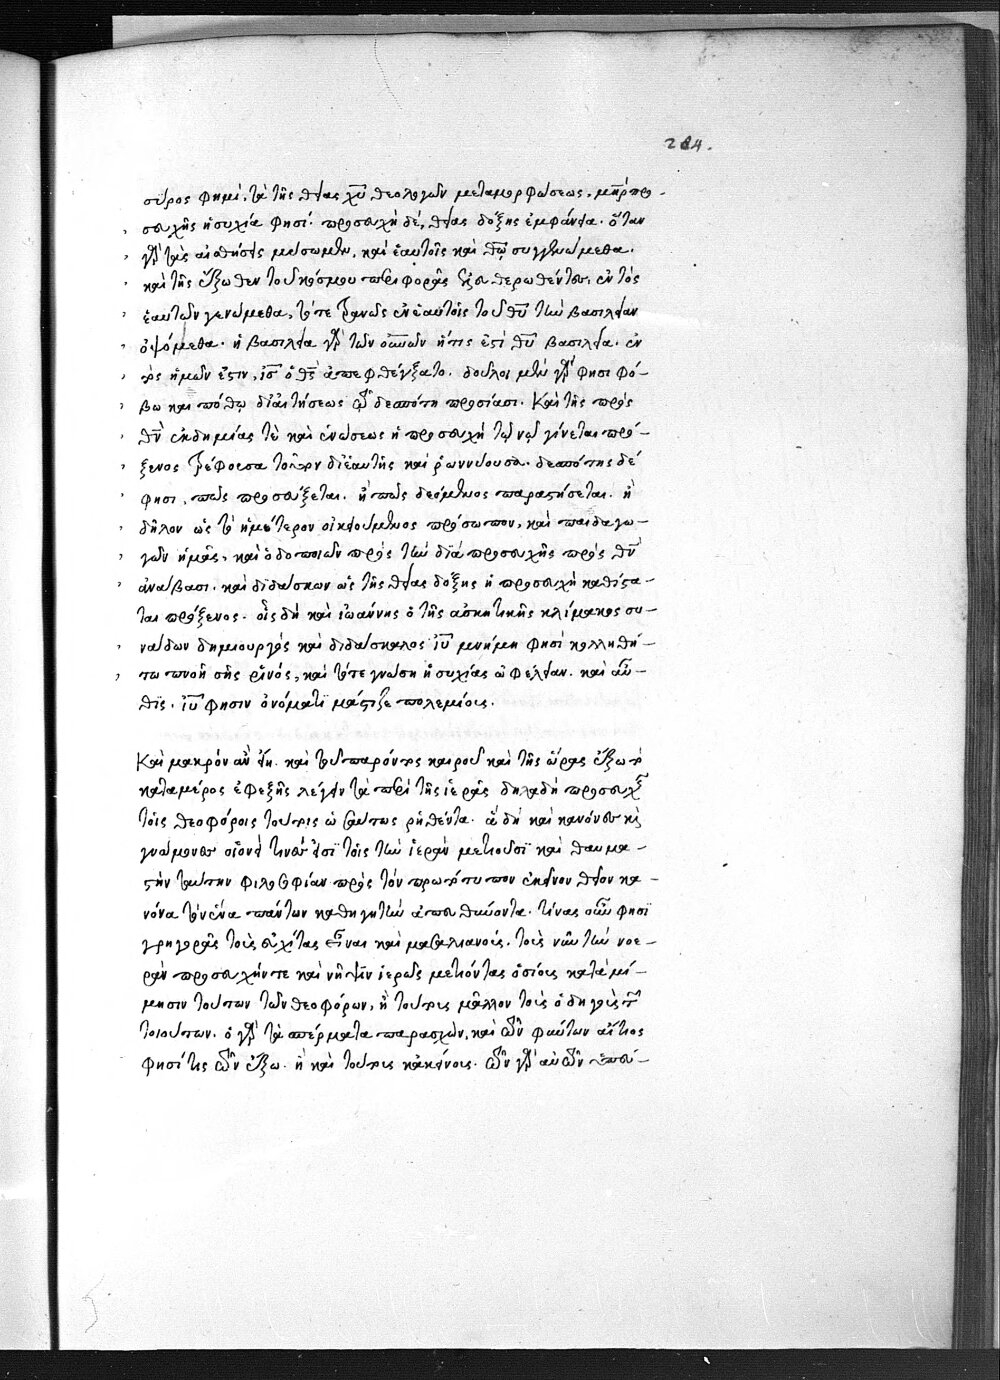 284.
σύρος φημί, τὰ τῆς θείας χυ θεολογῶν μεταμορφώσεως, μηρ προ-
σευχῆς ἡσυχία φησί. προσευχὴ δὲ, θείας δόξης ἐμφάνεια. ὅταν
γὰρ τὰς αἰσθήσεις μύσωμεν, καὶ ἑαυτοῖς καὶ θῶ συγγενώμεθα.
καὶ τῆς ἔξωθεν τοῦ κόσμου περιφορᾶς ἐλευθερωθέντες, ἐντὸς
ἑαυτῶν γενώμεθα, τότε τρανῶς ἐν ἑαυτοῖς τοῦ θυ τὴν βασιλείαν
ὀψόμεθα. ἡ βασιλεία γὰρ τῶν οὐνῶν ἥτις ἐστὶ θυ βασιλεία. ἐν-
τὸς ἡμῶν ἐστιν, ις ὁ θς ἀπεφθέγξατο. δοῦλοι μὲν γάρ φησι φό-
βω καὶ πόθω δι' αἰτήσεως τῷ δεσπότη προσίασι. Καὶ τῆς πρὸς
θν ἐκδημίας τὲ καὶ ἑνώσεως ἡ προσευχὴ τῷ νῷ γίνεται πρό-
ξενος τρέφουσα τοῦτον δι' ἑαυτῆς καὶ ῥωννύουσα. δεσπότης δέ
φησι, πῶς προσεύξεται. ἢ πῶς δεόμενος παραστήσεται. ἢ
δῆλον ὡς τὸ ἡμέτερον οἰκειούμενος πρόσωπον, καὶ παιδαγω-
γῶν ἡμᾶς, καὶ ὁδοποιῶν πρὸς τὴν διὰ προσευχῆς πρὸς θν
ἀνάβασι. καὶ διδάσκων ὡς τῆς θείας δόξης ἡ προσευχὴ καθίστα-
ται πρόξενος. οἷς δὴ καὶ ἰωάννης ὁ τῆς ἀσκητικῆς κλίμακος συ-
νάδων δημιουργὸς καὶ διδάσκαλος ιυ μνήμη φησὶ κολληθή-
τω πνοῆ σῆς ῥινός, καὶ τότε γνώση ἡσυχίας ὠφέλειαν. καὶ αὖ-
θις. ιυ φησιν ὀνόματι μάστιζε πολεμίους.
Καὶ μακρὸν ἂν εἴη. καὶ τοῦ παρόντος καιροῦ καὶ τῆς ὥρας ἔξω τὸ
καταμέρος ἐφεξῆς λέγειν τὰ περὶ τῆς ἱερᾶς δηλαδὴ προσευχῆς
τοῖς θεοφόροις τούτοις ὡσαύτως ῥηθέντα. ἃ δὴ καὶ κανόνες καὶ
γνώμονες οἱονεί τινές εἰσι τοῖς τὴν ἱερὰν μετιοῦσι καὶ θαυμα-
στὴν ταύτην φιλοσοφίαν πρὸς τὸν πρωτότυπον ἐκεῖνον θεῖον κα-
νόνα τὸν ἕνα πάντων καθηγητὴν ἀπευθύνοντα. τίνας οὖν φησι
γρηγορᾶς τοὺς εὐχίτας εἶναι καὶ μασαλιανούς. τοὺς νῦν τὴν νοε-
ρὰν προσευχήν τε καὶ νῆψιν ἱερῶς μετιόντας ὁσίους κατὰ μί-
μησιν τούτων τῶν θεοφόρων, ἢ τούτους μᾶλλον τοὺς ὁδηγοὺς τῶν
τοιούτων. ὁ γὰρ τὰ σπέρματα παρασχών, καὶ τῶν φύντων αἴτιος
φησί τις τῶν ἔξω. ἢ καὶ τούτους κἀκείνους. τῶν γὰρ αὐτῶν